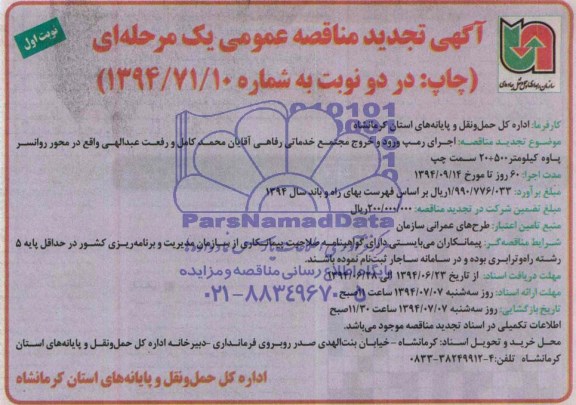 نوبت اول
آگهی تجدید مناقصه عمومی یک مرحله‌ای
(چاپ: در دو نوبت به شماره ۱۳۹۴/۷۱/۱۰)
کارفرما: اداره کل حمل‌ونقل و پایانه‌های استان کرمانشاه
موضوع تجدید مناقصه: اجرای رمپ ورود و خروج مجتمع خدماتی رفاهی آقایان محمد کامل و رفعت عبدالهی واقع در محور روانسر
پاوه کیلومتر ۵۰۰+۲۰ سمت چپ
مدت اجرا: ۶۰ روز تا مورخ ۱۳۹۴/۰۹/۱۴
مبلغ برآورد: ۱/۹۹۰/۷۷۶/۰۳۳ریال بر اساس فهرست بهای راه و باند سال ۱۳۹۴
مبلغ تضمین شرکت در تجدید مناقصه: ۲۰۰/۰۰۰/۰۰۰ریال
منبع تامین اعتبار: طرح‌های عمرانی سازمان
شرایط مناقصه‌گر: پیمانکاران می‌بایستی دارای گواهینامه صلاحیت پیمانکاری از سازمان مدیریت و برنامه‌ریزی کشور در حداقل پایه ۵
رشته راه‌وترابری بوده و در سامانه ساجار ثبت‌نام نموده باشند.
مهلت دریافت اسناد: از تاریخ ۱۳۹۴/۰۶/۲۳ الی ۱۳۹۴/۰۶/۲۸
مهلت ارائه اسناد: روز سه‌شنبه ۱۳۹۴/۰۷/۰۷ ساعت ۱۱صبح
تاریخ بازگشایی: روز سه‌شنبه ۱۳۹۴/۰۷/۰۷ ساعت ۱۱/۳۰صبح
اطلاعات تکمیلی در اسناد تجدید مناقصه موجود می‌باشد.
محل خرید و تحویل اسناد: کرمانشاه – خیابان بنت‌الهدی صدر روبروی فرمانداری –دبیرخانه اداره کل حمل‌ونقل و پایانه‌های استان
کرمانشاه تلفن:۴-۳۸۲۴۹۹۱۲-۰۸۳۳
اداره کل حمل‌ونقل و پایانه‌های استان کرمانشاه
ParsNamadData
پایگاه اطلاع رسانی مناقصه و مزایده
۰۲۱-۸۸۳۴۹۶۷۰-۵